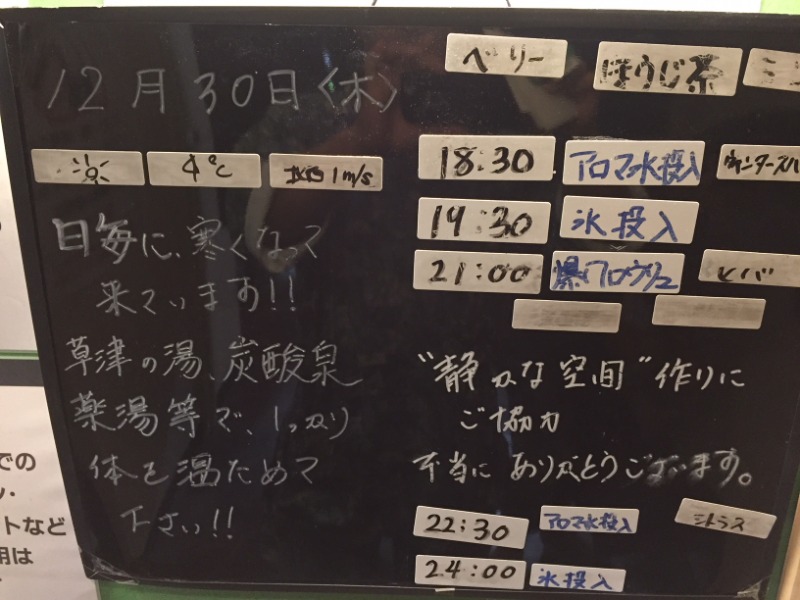 ベリー ほうじ茶 ミン
12月30日〈木〉
4℃ 1m/s
18:30 アロマ水投入 ウィンタースパ
19:30 氷投入
21:00 爆アロウリュ ヒバ
日毎に、寒くなって
来ています!!
草津の湯、炭酸泉
薬湯等で、しっかり
体を温ためて
下さい!!
"静かな空間"作りに
ご協力
本当に ありがとうございます。
22:30 アロマ水投入 シトラス
24:00 氷投入
での
トなど
用は